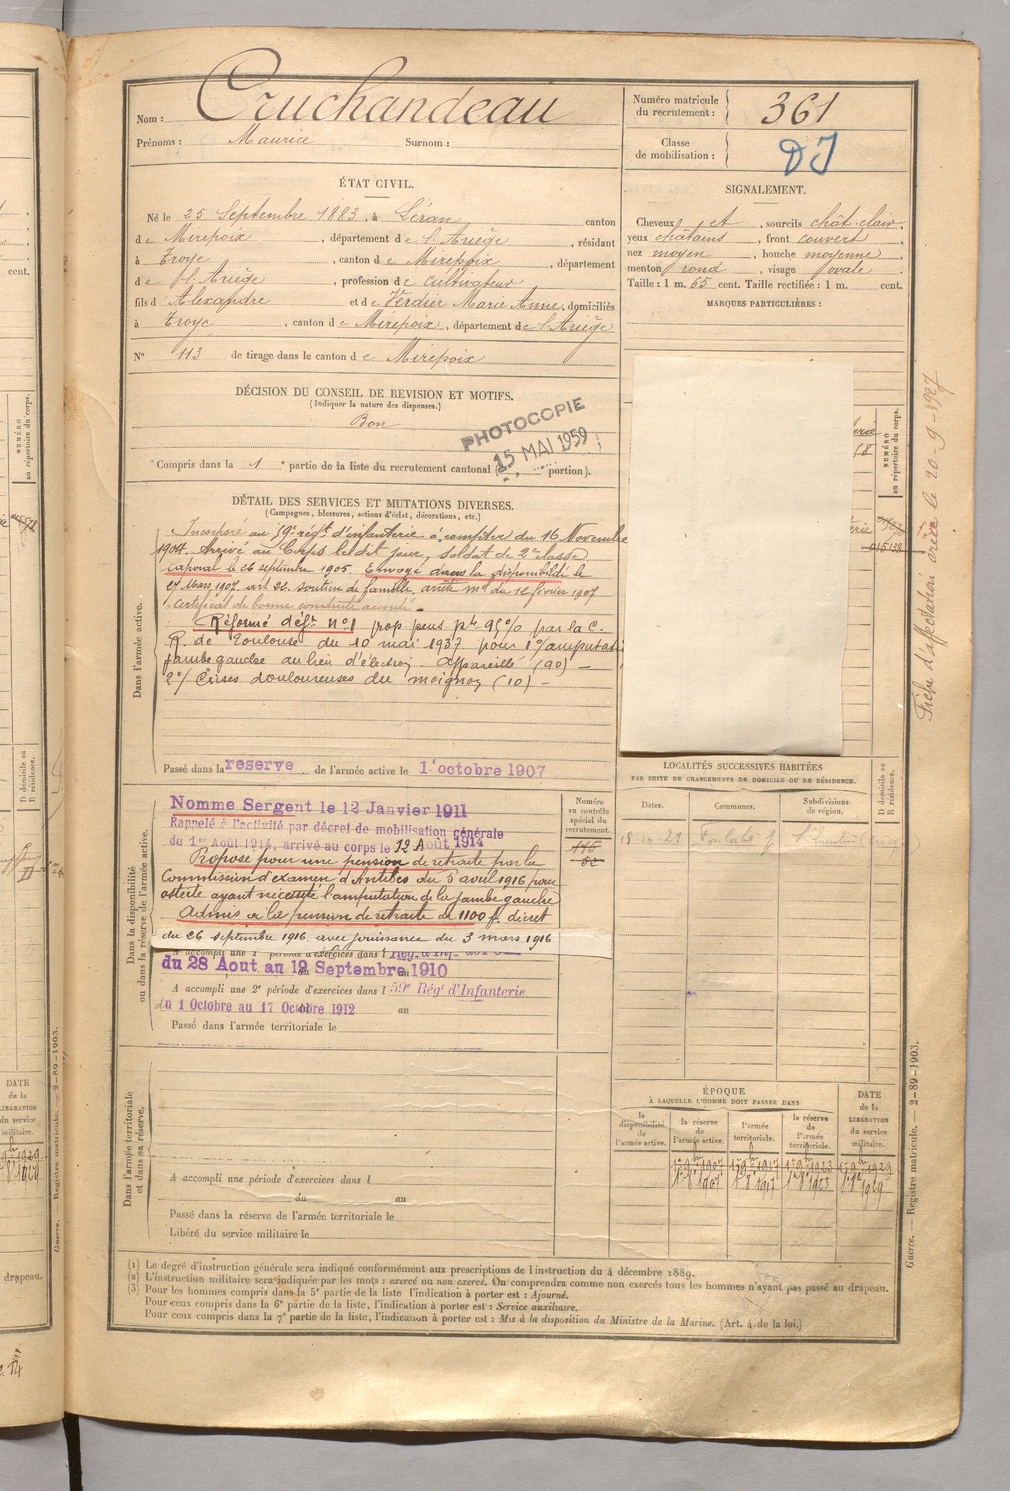 Nom : Cruchandeau
Prénoms : Maurice Surnom :
Numéro matricule
du recrutement : 361
Classe
de mobilisation : DI
ÉTAT CIVIL.
Né le 25 Septembre 1883, à Léran canton
de Mirepoix, département de l'Ariège, résidant
à Troye, canton de Mirepoix, département
de l'Ariège, profession de Cultivateur
fils d'Alexandre et de Verdier Marie Anne, domiciliés
à Troye, canton de Mirepoix, département de l'Ariège
N° 113 de tirage dans le canton de Mirepoix
SIGNALEMENT.
Cheveux et, sourcils chât. clair,
yeux châtains, front couvert,
nez moyen, bouche moyenne,
menton rond, visage ovale.
Taille : 1 m. 65 cent. Taille rectifiée : 1 m. cent.
MARQUES PARTICULIÈRES :
DÉCISION DU CONSEIL DE REVISION ET MOTIFS.
(Indiquer la nature des dispenses.)
Bon
PHOTOCOPIE
15 MAI 1959
Compris dans la 1e partie de la liste du recrutement cantonal ( portion).
DÉTAIL DES SERVICES ET MUTATIONS DIVERSES.
(Campagnes, blessures, actions d'éclat, décorations, etc.)
Dans l'armée active.
Incorporé au 59e régt d'infanterie à compter du 16 Novembre
1904. Arrivé au Corps le dit jour, soldat de 2e classe
Caporal le 26 septembre 1905. Envoyé dans la disponibilité le
27 Mars 1907 art. 22. soutien de famille, arrêté mel du 12 février 1907
Certificat de bonne conduite accordé.
Réformé déft n°1 prop. pens pte 95% par la C.
R. de Toulouse du 10 mai 1937 pour 1°/amputati
jambe gauche au lieu d'élection. appareillé (90) —
2°/ Crises douloureuses du moignon (10) —
Passé dans la reserve de l'armée active le 1 octobre 1907
NUMÉRO
au répertoire du corps.
015138
Fiche d'affectation créée le 20-9-1927
Dans la disponibilité
ou dans la réserve de l'armée active.
Nomme Sergent le 12 Janvier 1911
Rappelé à l'activité par décret de mobilisation générale
du 1er Août 1914, arrivé au corps le 12 Août 1914
Proposé pour une pension de retraite par la
Commission d'examen d'Antibes du 3 avril 1916 pour
ostéite ayant nécessité l'amputation de la jambe gauche
Admis à la pension de retraite de 1100 f. décret
du 26 septembre 1916. avec jouissance du 3 mars 1916
A accompli une 1e période d'exercices dans l
du 28 Aout au 19 Septembre 1910
A accompli une 2e période d'exercices dans l 59e Régt d'Infanterie
du 1 Octobre au 17 Octobre 1912 au
Passé dans l'armée territoriale le
Numéro
au contrôle
spécial du
recrutement.
115
52
LOCALITÉS SUCCESSIVES HABITÉES
PAR SUITE DE CHANGEMENTS DE DOMICILE OU DE RÉSIDENCE.
Dates. Communes. Subdivisions
de région.
D domicile ou
R résidence.
Dans l'armée territoriale
et dans sa réserve.
A accompli une période d'exercices dans l
du au
Passé dans la réserve de l'armée territoriale le
Libéré du service militaire le
ÉPOQUE
À LAQUELLE L'HOMME DOIT PASSER DANS
la
disponibilité
de
l'armée active.
la réserve
de
l'armée active.
l'armée
territoriale.
la réserve
de
l'armée
territoriale.
DATE
de la
LIBÉRATION
du service
militaire.
1er 8bre 1907
1er 8bre 1917
1er 8bre 1923
1er 8bre 1929
Guerre. — Registre matricule. — 2-89-1903.
(1) Le degré d'instruction générale sera indiqué conformément aux prescriptions de l'instruction du 4 décembre 1889.
(2) L'instruction militaire sera indiquée par les mots : exercé ou non exercé. On comprendra comme non exercés tous les hommes n'ayant pas passé au drapeau.
(3) Pour les hommes compris dans la 5e partie de la liste l'indication à porter est : Ajourné.
Pour ceux compris dans la 6e partie de la liste, l'indication à porter est : Service auxiliaire.
Pour ceux compris dans la 7e partie de la liste, l'indication à porter est : Mis à la disposition du Ministre de la Marine. (Art. 4 de la loi.)